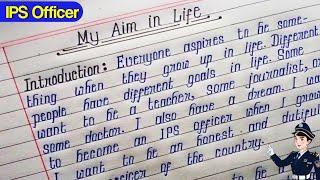 IPS Officer
My Aim in Life
Introduction: Everyone aspires to be some-
thing when they grow up in life. Different
people have different goals in life. Some
want to be a teacher, some journalist, or
some doctor. I also have a dream. I wa
to become an IPS officer when I grow
I want to be an honest and dutiful
officer of the country.